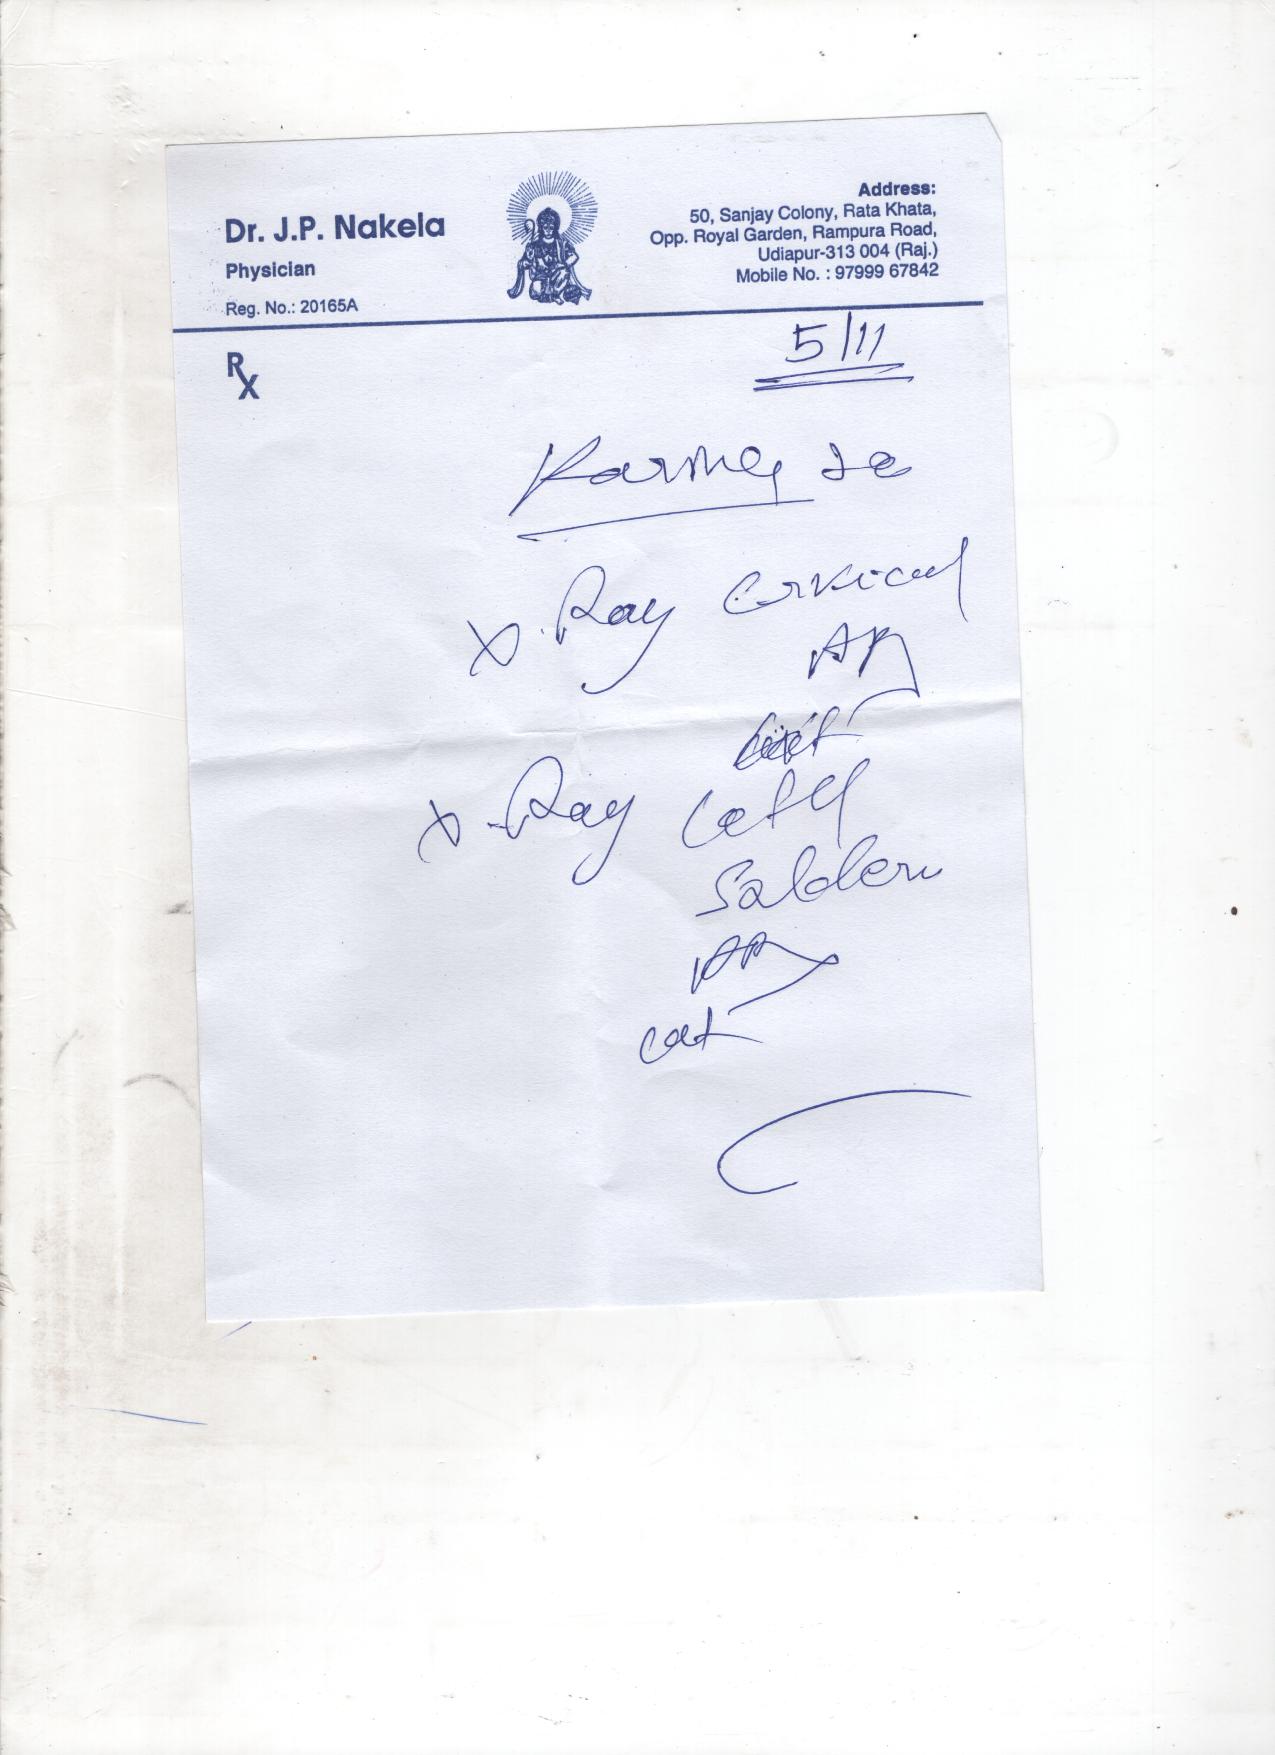 Dr. J.P. Nakela
Physician
Reg. No.: 20165A
Address:
50, Sanjay Colony, Rata Khata,
Opp. Royal Garden, Rampura Road,
Udiapur-313 004 (Raj.)
Mobile No. : 97999 67842
Rx
5/11
X. Ray Cervical
AP
X. Ray Left
AP
Lat